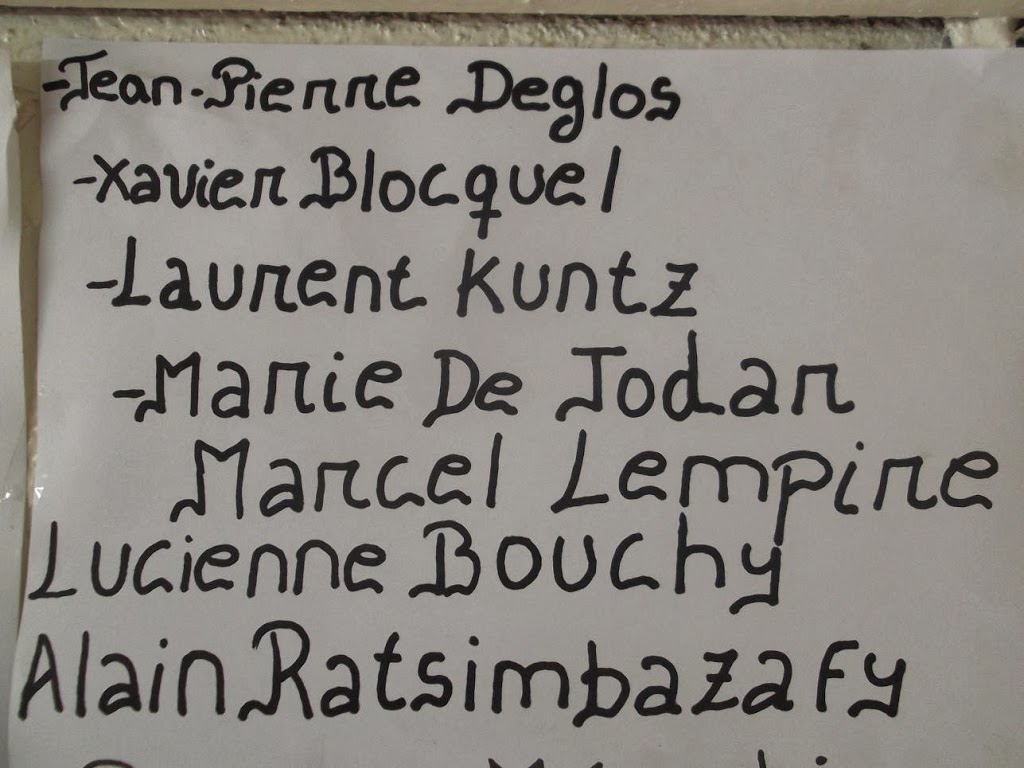 -Jean-Pierre Deglos
-Xavier Blocquel
-Laurent Kuntz
-Marie De Jodar
Marcel Lempire
Lucienne Bouchy
Alain Ratsimbazafy